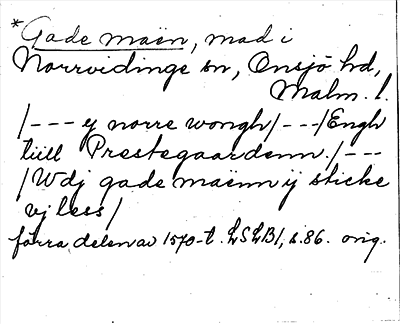 *Gade maën, mad i
Norrvidinge sn, Onsjö hd,
Malm. l.
/--- y norre wongh/---/Engh
tiill Prestegaardenn./---
/Wdj gade maënn ij sticke
vj less/
förra delen av 1570-t. LSLB1, s. 86. orig.